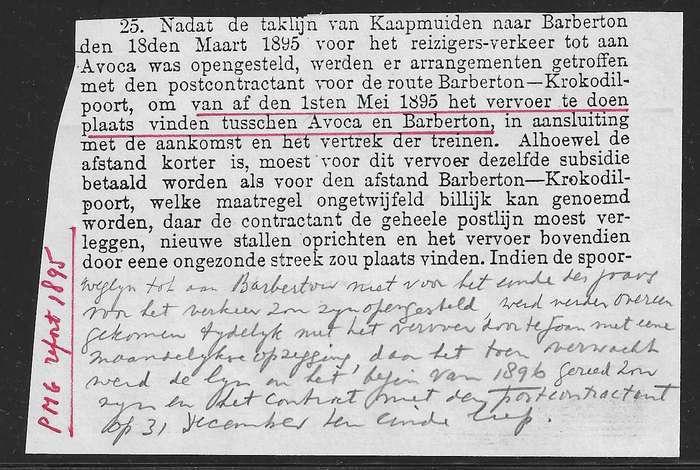 25. Nadat de taklijn van Kaapmuiden naar Barberton
den 18den Maart 1895 voor het reizigers-verkeer tot aan
Avoca was opengesteld, werden er arrangementen getroffen
met den postcontractant voor de route Barberton—Krokodil-
poort, om van af den 1sten Mei 1895 het vervoer te doen
plaats vinden tusschen Avoca en Barberton, in aansluiting
met de aankomst en het vertrek der treinen. Alhoewel de
afstand korter is, moest voor dit vervoer dezelfde subsidie
betaald worden als voor den afstand Barberton—Krokodil-
poort, welke maatregel ongetwijfeld billijk kan genoemd
worden, daar de contractant de geheele postlijn moest ver-
leggen, nieuwe stallen oprichten en het vervoer bovendien
door eene ongezonde streek zou plaats vinden. Indien de spoor-
weglyn tot aan Barberton niet voor het einde des jaars
voor het verkeer zou zyn opengesteld, werd verder overeen
gekomen tydelyk met het vervoer door te gaan met eene
maandelykse opzegging, daar het toen verwacht
werd de lyn in het begin van 1896 gereed zou
zyn en het contract met den postcontractant
op 31 December ten einde liep.
PMG report 1895